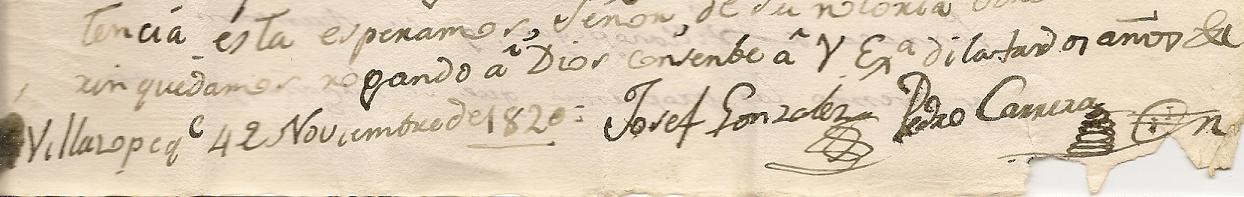 tencia ésta esperamos, Señor, de su notoria
quedamos rogando â Dios consenbe â V Exª dilatados años &
Villazopeqᶜ 4 2 Noviembre de 1820= Josef Gonzalez Pedro Carrera